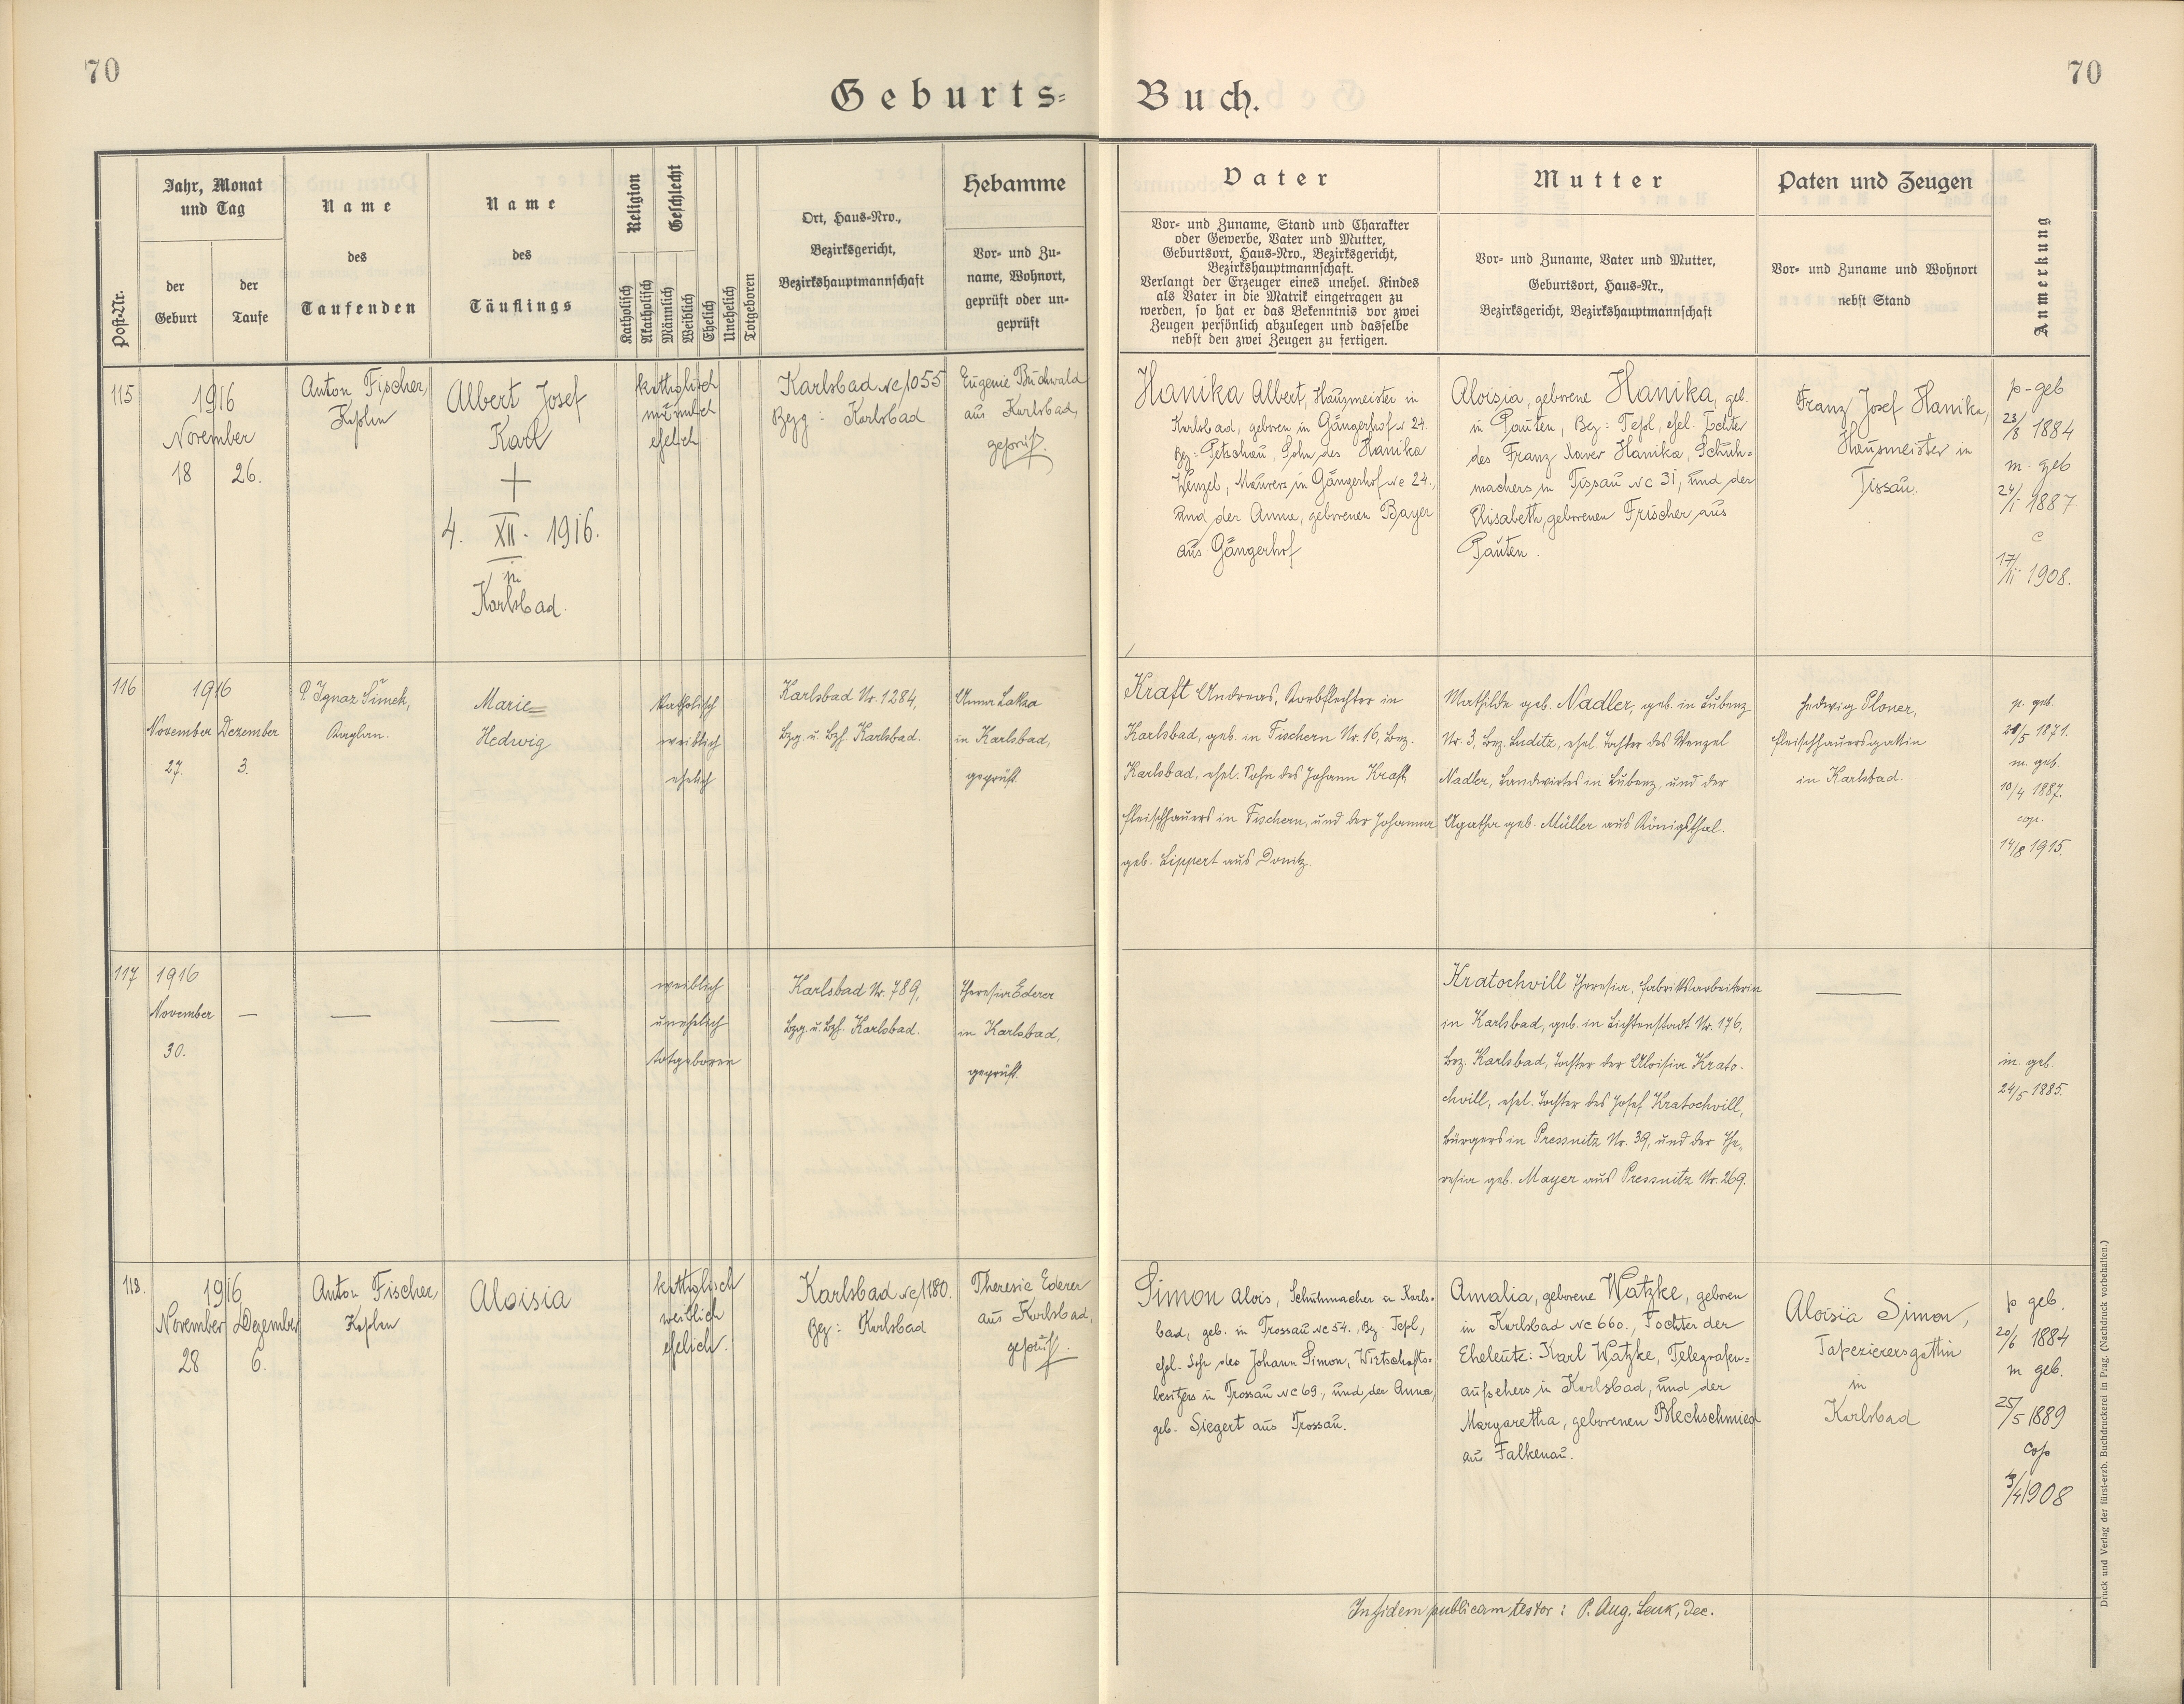 70
70
Geburts=
Buch.
Post-Nr.
Jahr, Monat
und Tag
der
Geburt
der
Taufe
Name
des
Taufenden
Name
des
Täuflings
Religion
Katholisch
Akatholisch
Geschlecht
Männlich
Weiblich
Ehelich
Unehelich
Totgeboren
Ort, Haus-Nro.,
Bezirksgericht,
Bezirkshauptmannschaft
Hebamme
Vor- und Zu-
name, Wohnort,
geprüft oder un-
geprüft
Vater
Vor- und Zuname, Stand und Charakter
oder Gewerbe, Vater und Mutter,
Geburtsort, Haus-Nro., Bezirksgericht,
Bezirkshauptmannschaft.
Verlangt der Erzeuger eines unehel. Kindes
als Vater in die Matrik eingetragen zu
werden, so hat er das Bekenntnis vor zwei
Zeugen persönlich abzulegen und dasselbe
nebst den zwei Zeugen zu fertigen.
Mutter
Vor- und Zuname, Vater und Mutter,
Geburtsort, Haus-Nr.,
Bezirksgericht, Bezirkshauptmannschaft
Paten und Zeugen
Vor- und Zuname und Wohnort
nebst Stand
Anmerkung
115
1916
November
18
26.
Anton Fischer,
Kaplan
Albert Josef
Karl
+
4. XII. 1916.
in
Karlsbad.
katholisch
männlich
ehelich
Karlsbad Nc 1055
Bezg: Karlsbad
Eugenie Buchwald
aus Karlsbad,
geprüft.
Hanika Albert, Hausmeister in
Karlsbad, geboren in Gängerhof Nc 24.
Bz: Petschau, Sohn des Hanika
Wenzel, Maurers in Gängerhof Nc 24.,
und der Anna, geborenen Bayer
aus Gängerhof
Aloisia, geborene Hanika, geb.
in Pauten, Bez: Tepl, ehel. Tochter
des Franz Xaver Hanika, Schuh=
machers in Tissau Nc 31, und der
Elisabeth, geborenen Frischer aus
Pauten.
Franz Josef Hanika,
Hausmeister in
Tissau.
p-geb
23/8 1884
m. geb
24/1 1887
c
17/II 1908.
116
1916
November
27.
Dezember
3.
P. Ignaz Šimek,
Kaplan.
Marie
Hedwig
katholisch
weiblich
ehelich
Karlsbad Nr. 1284,
Bzg. u. Bzh. Karlsbad.
Anna Laksa
in Karlsbad,
geprüft.
Kraft Andreas, Korbflechter in
Karlsbad, geb. in Fischern Nr. 16, Bez.
Karlsbad, ehel. Sohn des Johann Kraft,
Fleischhauers in Fischern, und der Johanna
geb. Lippert aus Donitz.
Mathilde geb. Nadler, geb. in Lubenz
Nr. 3, Bez. Luditz, ehel. Tochter des Wenzel
Nadler, Landwirtes in Lubenz, und der
Agatha geb. Müller aus Königsthal.
Hedwig Ploner,
Fleischhauersgattin
in Karlsbad.
p. geb.
/5 1871.
m. geb.
10/4 1887.
cop.
14/8 1915.
117
1916
November
30.
—
—
—
weiblich
unehelich
totgeboren
Karlsbad Nr. 789,
Bzg. u. Bzh. Karlsbad.
Theresia Ederer
in Karlsbad,
geprüft.
Kratochvill Theresia, Fabriksarbeiterin
in Karlsbad, geb. in Lichtenstadt Nr. 176,
Bez. Karlsbad, Tochter der Aloisia Krato-
chvill, ehel. Tochter des Josef Kratochvill,
Bürgers in Pressnitz Nr. 39, und der The-
resia geb. Mayer aus Pressnitz Nr. 269.
—
m. geb.
24/5 1885.
118.
1916
November
28
Dezember
6.
Anton Fischer,
Kaplan
Aloisia
katholisch
weiblich
ehelich.
Karlsbad Nc 1180.
Bez: Karlsbad
Theresie Ederer
aus Karlsbad,
geprüft.
Simon Alois, Schuhmacher in Karls=
bad, geb. in Trossau Nc 54., Bz. Tepl,
ehel. Sohn des Johann Simon, Wirtschafts=
besitzers in Trossau Nc 69., und der Anna,
geb. Siegert aus Trossau.
Amalia, geborene Watzke, geboren
in Karlsbad Nc 660., Tochter der
Eheleute: Karl Watzke, Telegrafen=
aufsehers in Karlsbad, und der
Margaretha, geborenen Blechschmied
aus Falkenau.
Aloisia Simon,
Tapezierersgattin
in
Karlsbad
p geb.
20/6 1884
m geb.
25/5 1889
cop
/4 1908
In fidem publicam testor: P. Aug. Lenk, Dec.
Druck und Verlag der fürst-erzb. Buchdruckerei in Prag. (Nachdruck vorbehalten.)